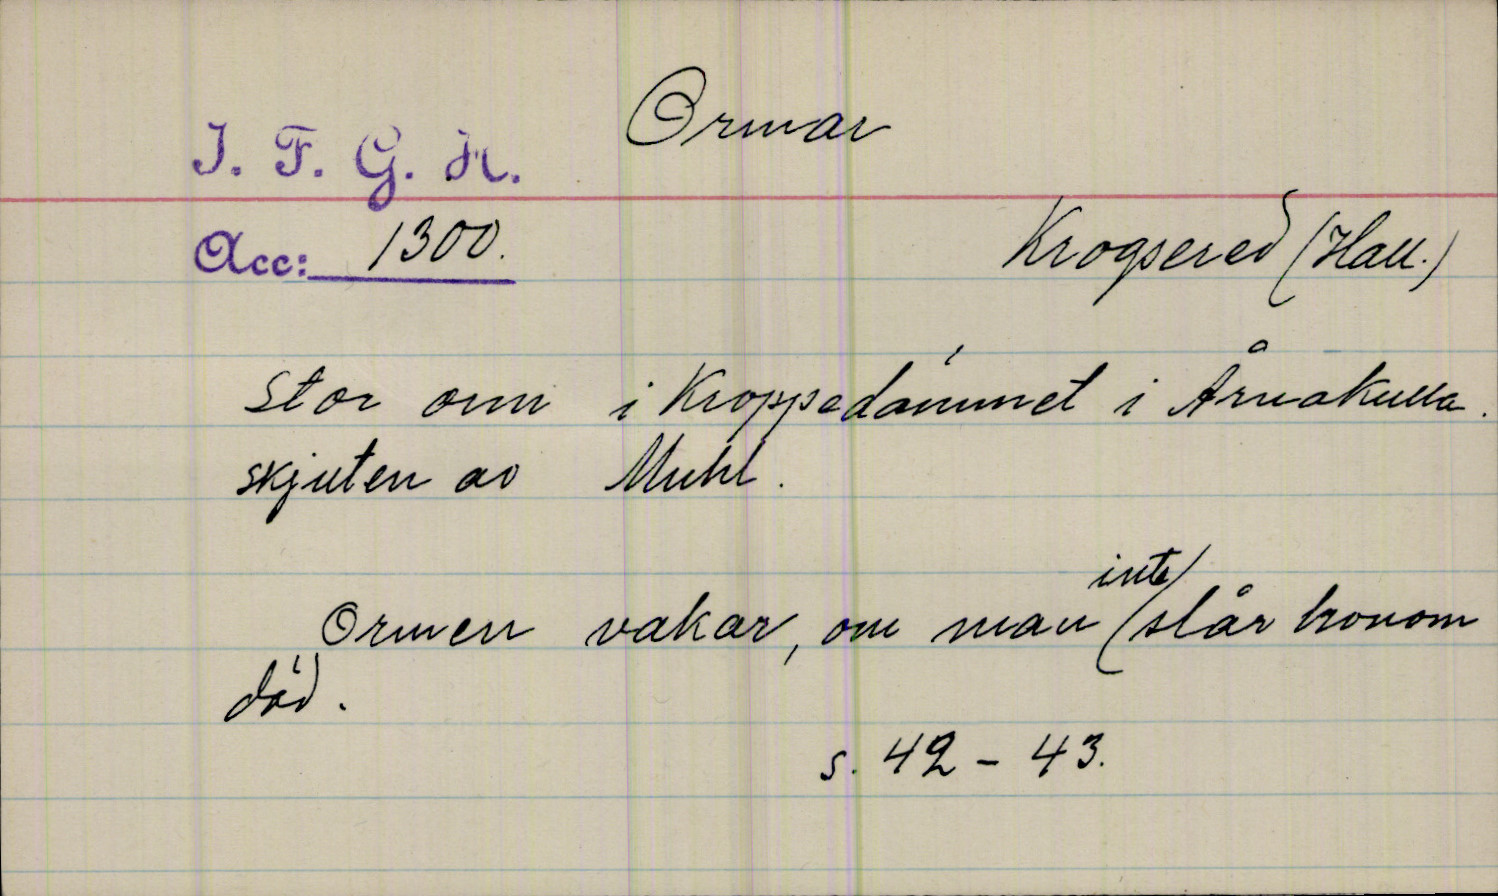 Ormar
I. F. G. H.
Acc: 1300.
Krogsered (Hall.)
Stor orm i Kroppedammet i Årnakulla.
skjuten av Muhl.
Ormen vakar, om man inte slår honom
död.
s. 42 - 43.